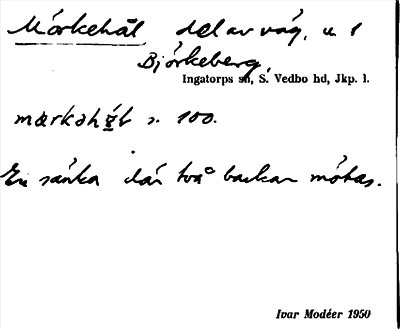 Mörkehål del av väg, u 1
Björkeberg,
Ingatorps sn, S. Vedbo hd, Jkp. l.
mærkəhɷ́l s. 100.
En sänka där två backar mötas.
Ivar Modéer 1950